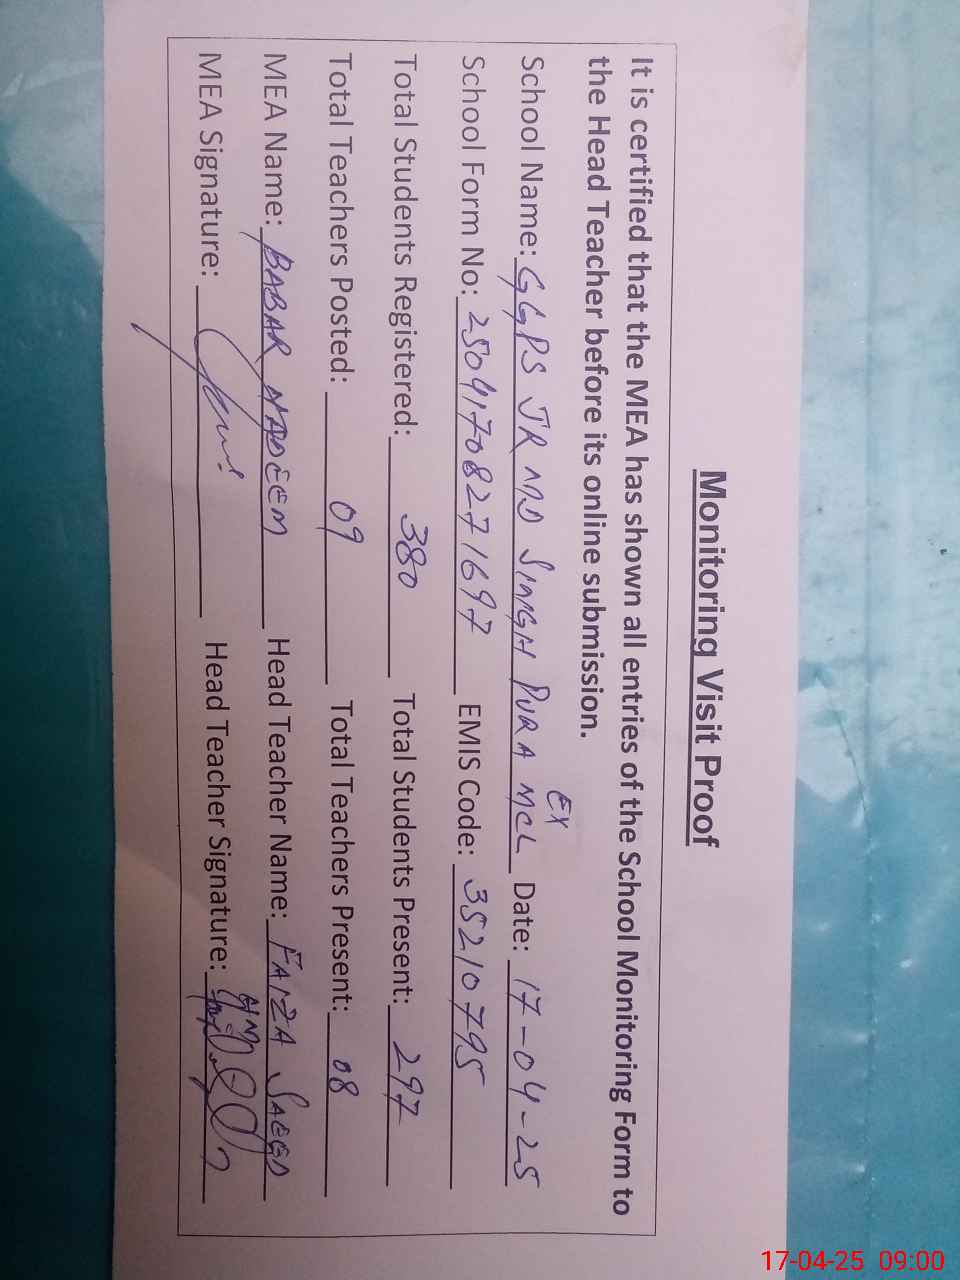 Monitoring Visit Proof
It is certified that the MEA has shown all entries of the School Monitoring Form to
the Head Teacher before its online submission.
EX
School Name: GGPS JR MD SINGH PURA MCL Date: 17-04-25
School Form No: 25041708271697 EMIS Code: 35210795
Total Students Registered: 380 Total Students Present: 297
Total Teachers Posted: 09 Total Teachers Present: 08
MEA Name: BABAR NADEEM Head Teacher Name: FAIZA SAEED
MEA Signature: Head Teacher Signature:
17-04-25 09:00